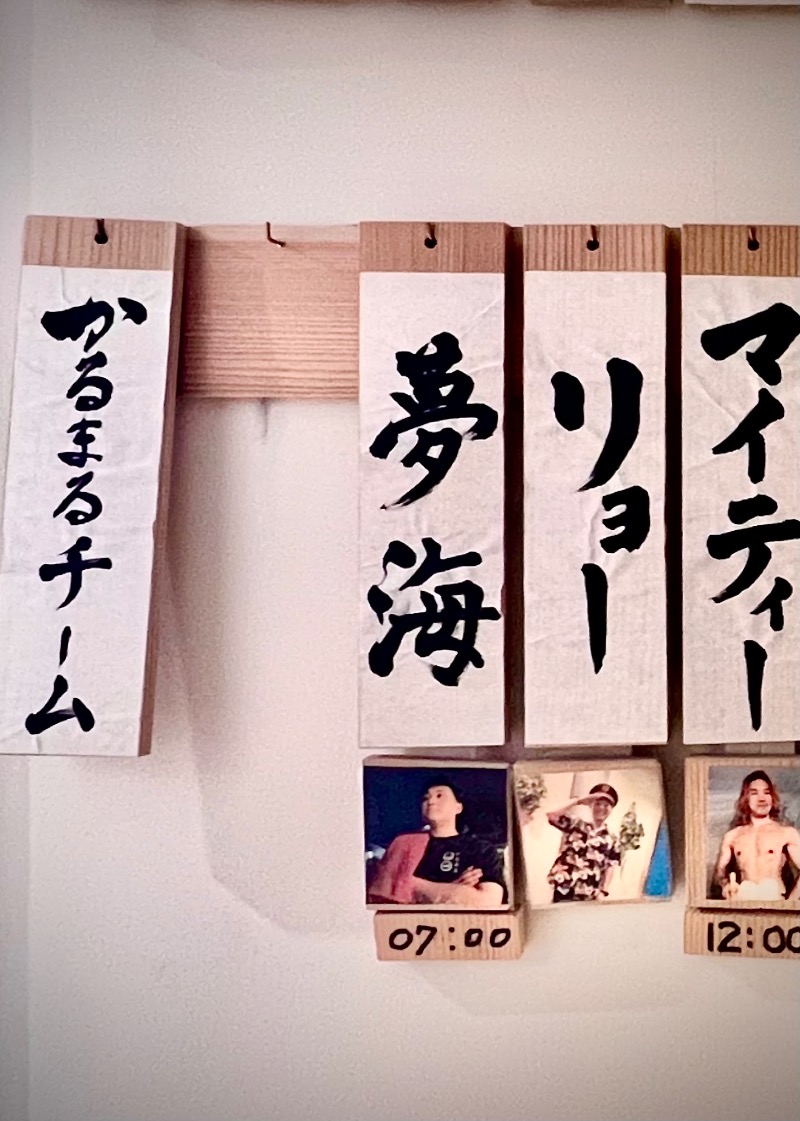 かるまるチーム
夢海
リョー
マイティー
07:00
12:00